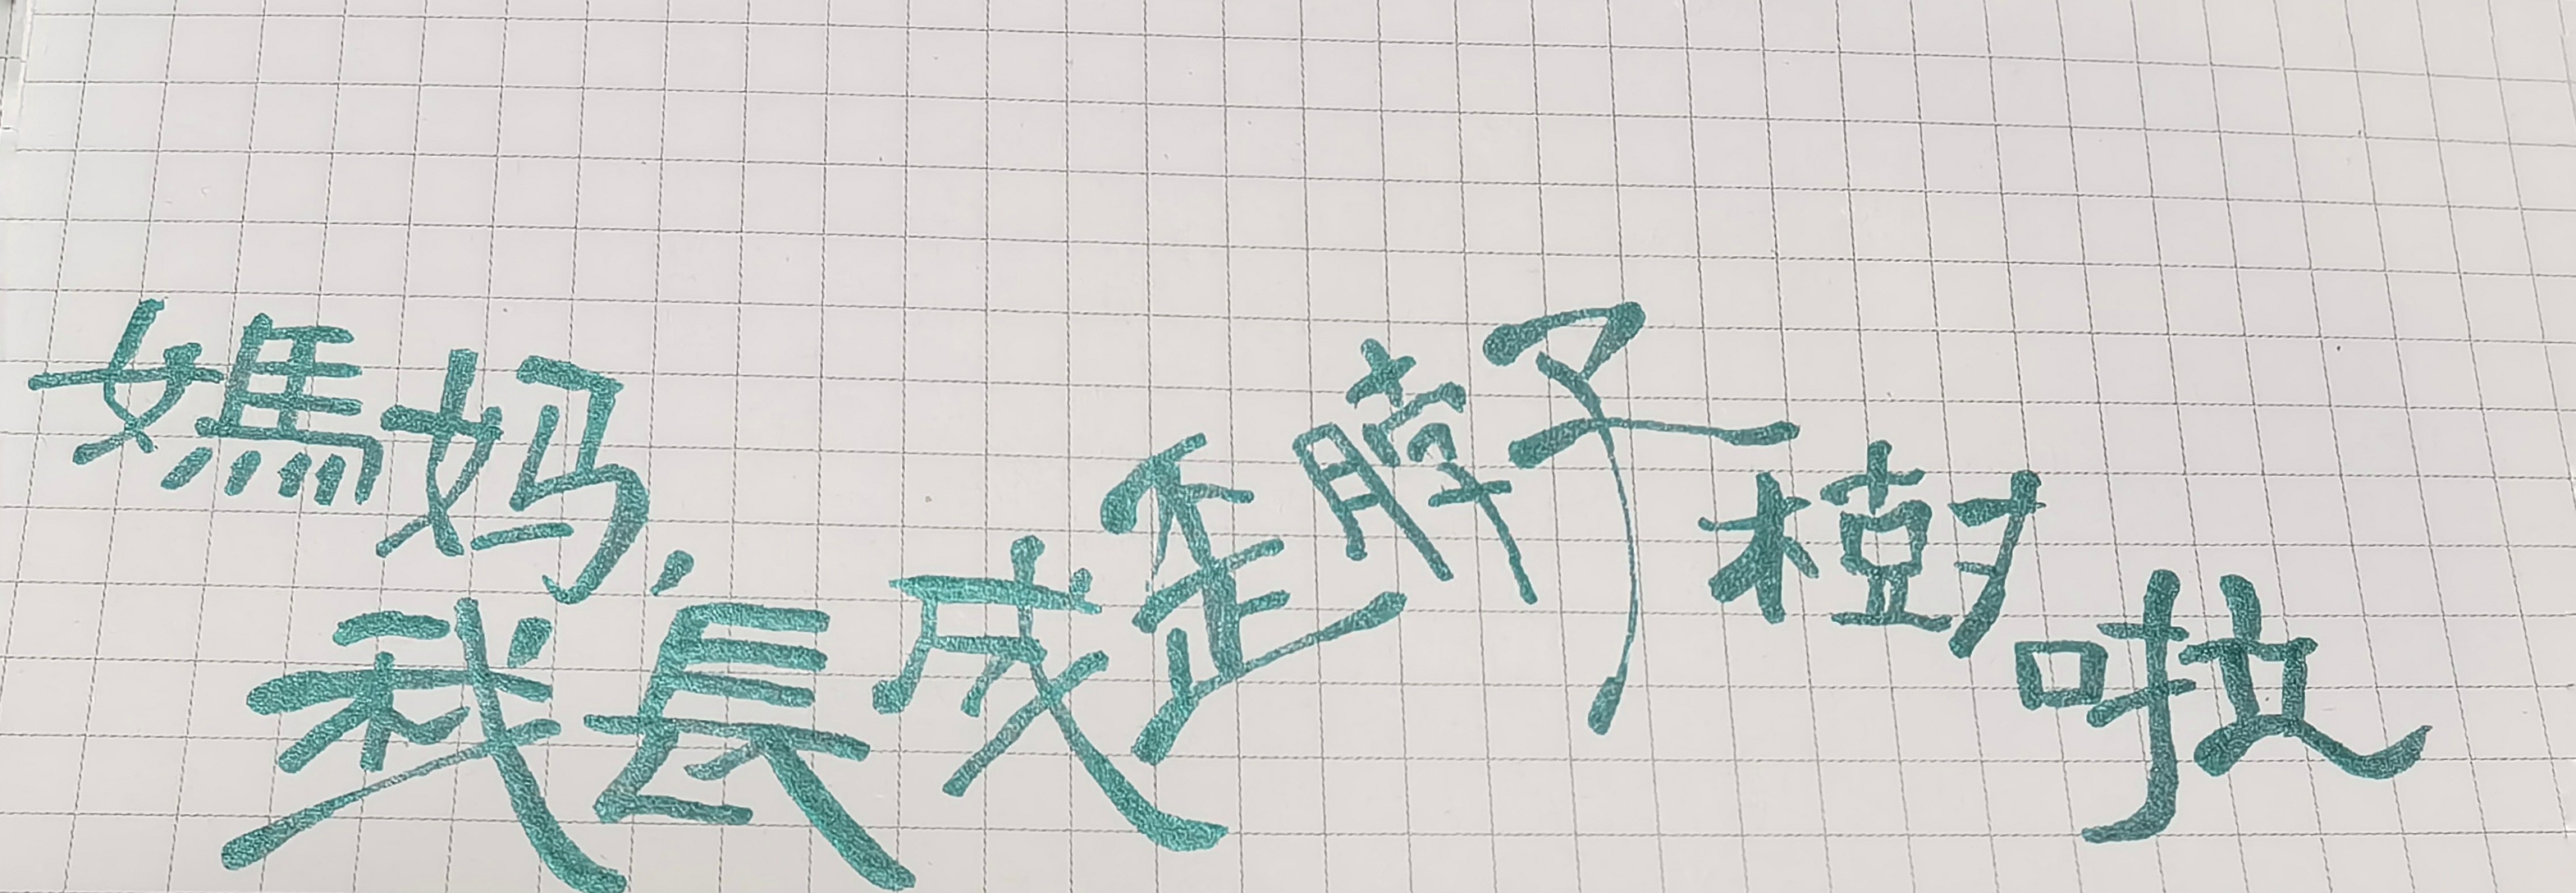 媽妈，我長成歪脖子樹啦